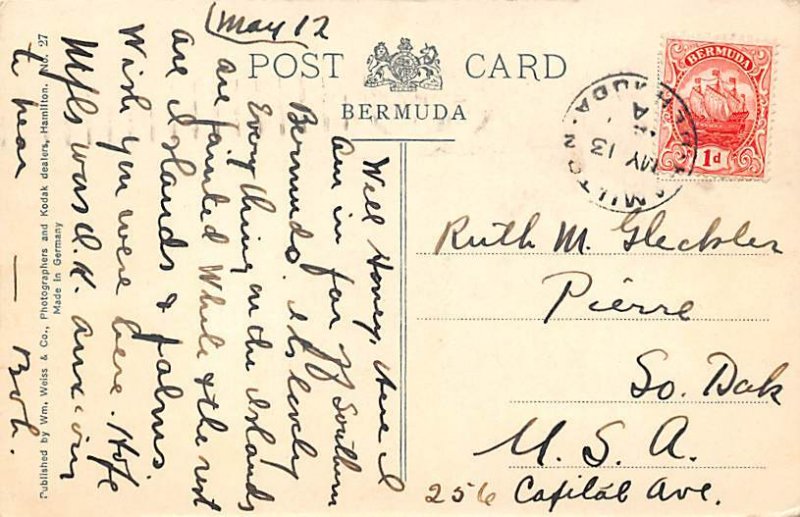 May 12
POST CARD
BERMUDA
BERMUDA
1d
HAMILTON
MY 13
BERMUDA
Well Honey, Here I
Am in far off Southern
Bermuda. Its lovely
Everything on the Islands
are painted White & the rest
are Islands & palms.
Wish you were here. Hope
Mpls was O.K. anxious
to hear
— Bob.
Ruth M. Gleckler
Pierre
So. Dak
U. S. A.
256 Capital Ave.
Published by Wm. Weiss & Co., Photographers and Kodak dealers, Hamilton. No. 27
Made in Germany